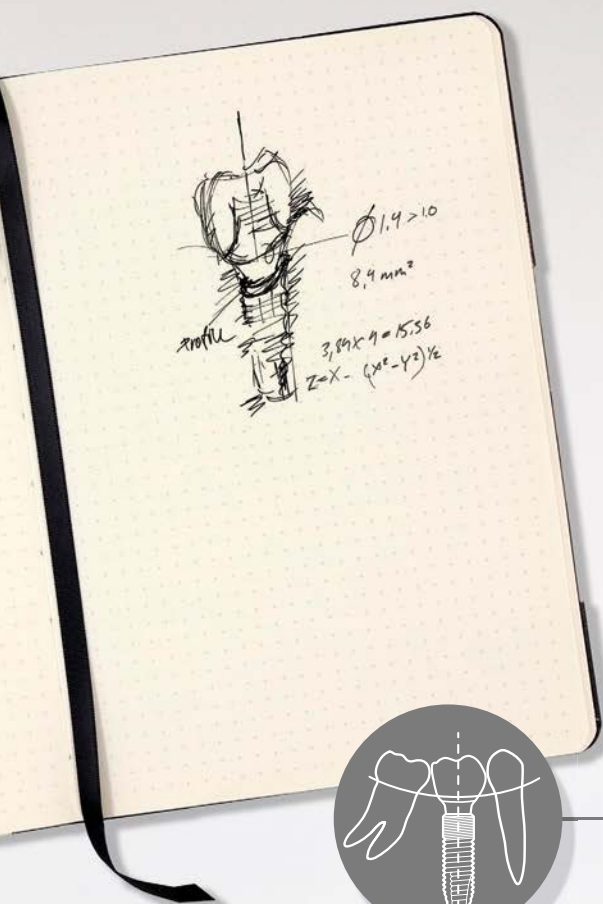 Ø 1.4 > 1.0
8,4 mm²
Profile
3,89 x 4 = 15.56
Z = X - (X² - Y²) ½